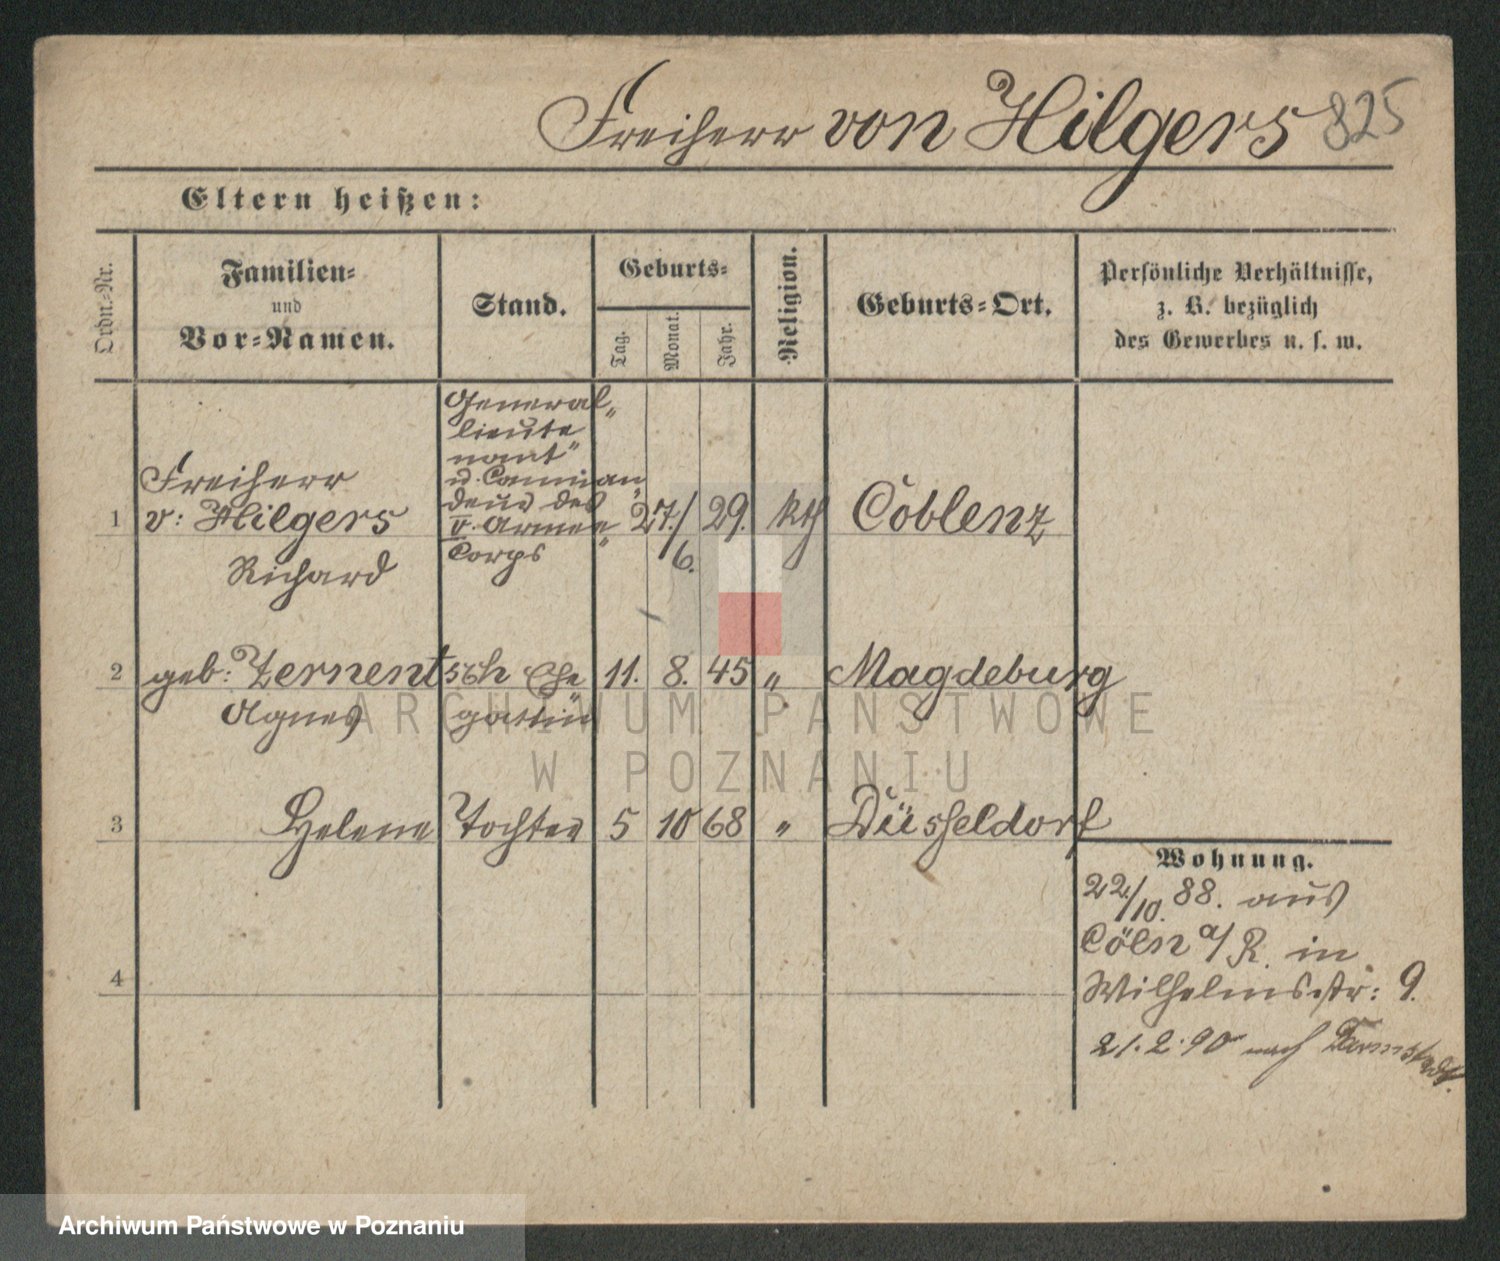 Freiherr von Hilgers 825
Eltern heißen:
Ordn.-Nr.
Familien-
und
Vor-Namen.
Stand.
Geburts-
Tag.
Monat.
Jahr.
Religion.
Geburts-Ort.
Persönliche Verhältnisse,
z. B. bezüglich
des Gewerbes u. s. w.
1
Freiherr
v: Hilgers
Richard
General-
lieute
nant
u. Comman-
deur des
V. Armee-
Corps
27./6. 29. kth Coblenz
2 geb: Zernentsch Ehe 11. 8. 45 " Magdeburg
Agnes gattin
3 Helene Tochter 5 10 68 " Düsseldorf
4
Wohnung.
22./10. 88. aus
Cöln a/R. in
Wilhelmsstr: 9.
21. 2. 90 nach Darmstadt.
ARCHIWUM PAŃSTWOWE
W POZNANIU
Archiwum Państwowe w Poznaniu